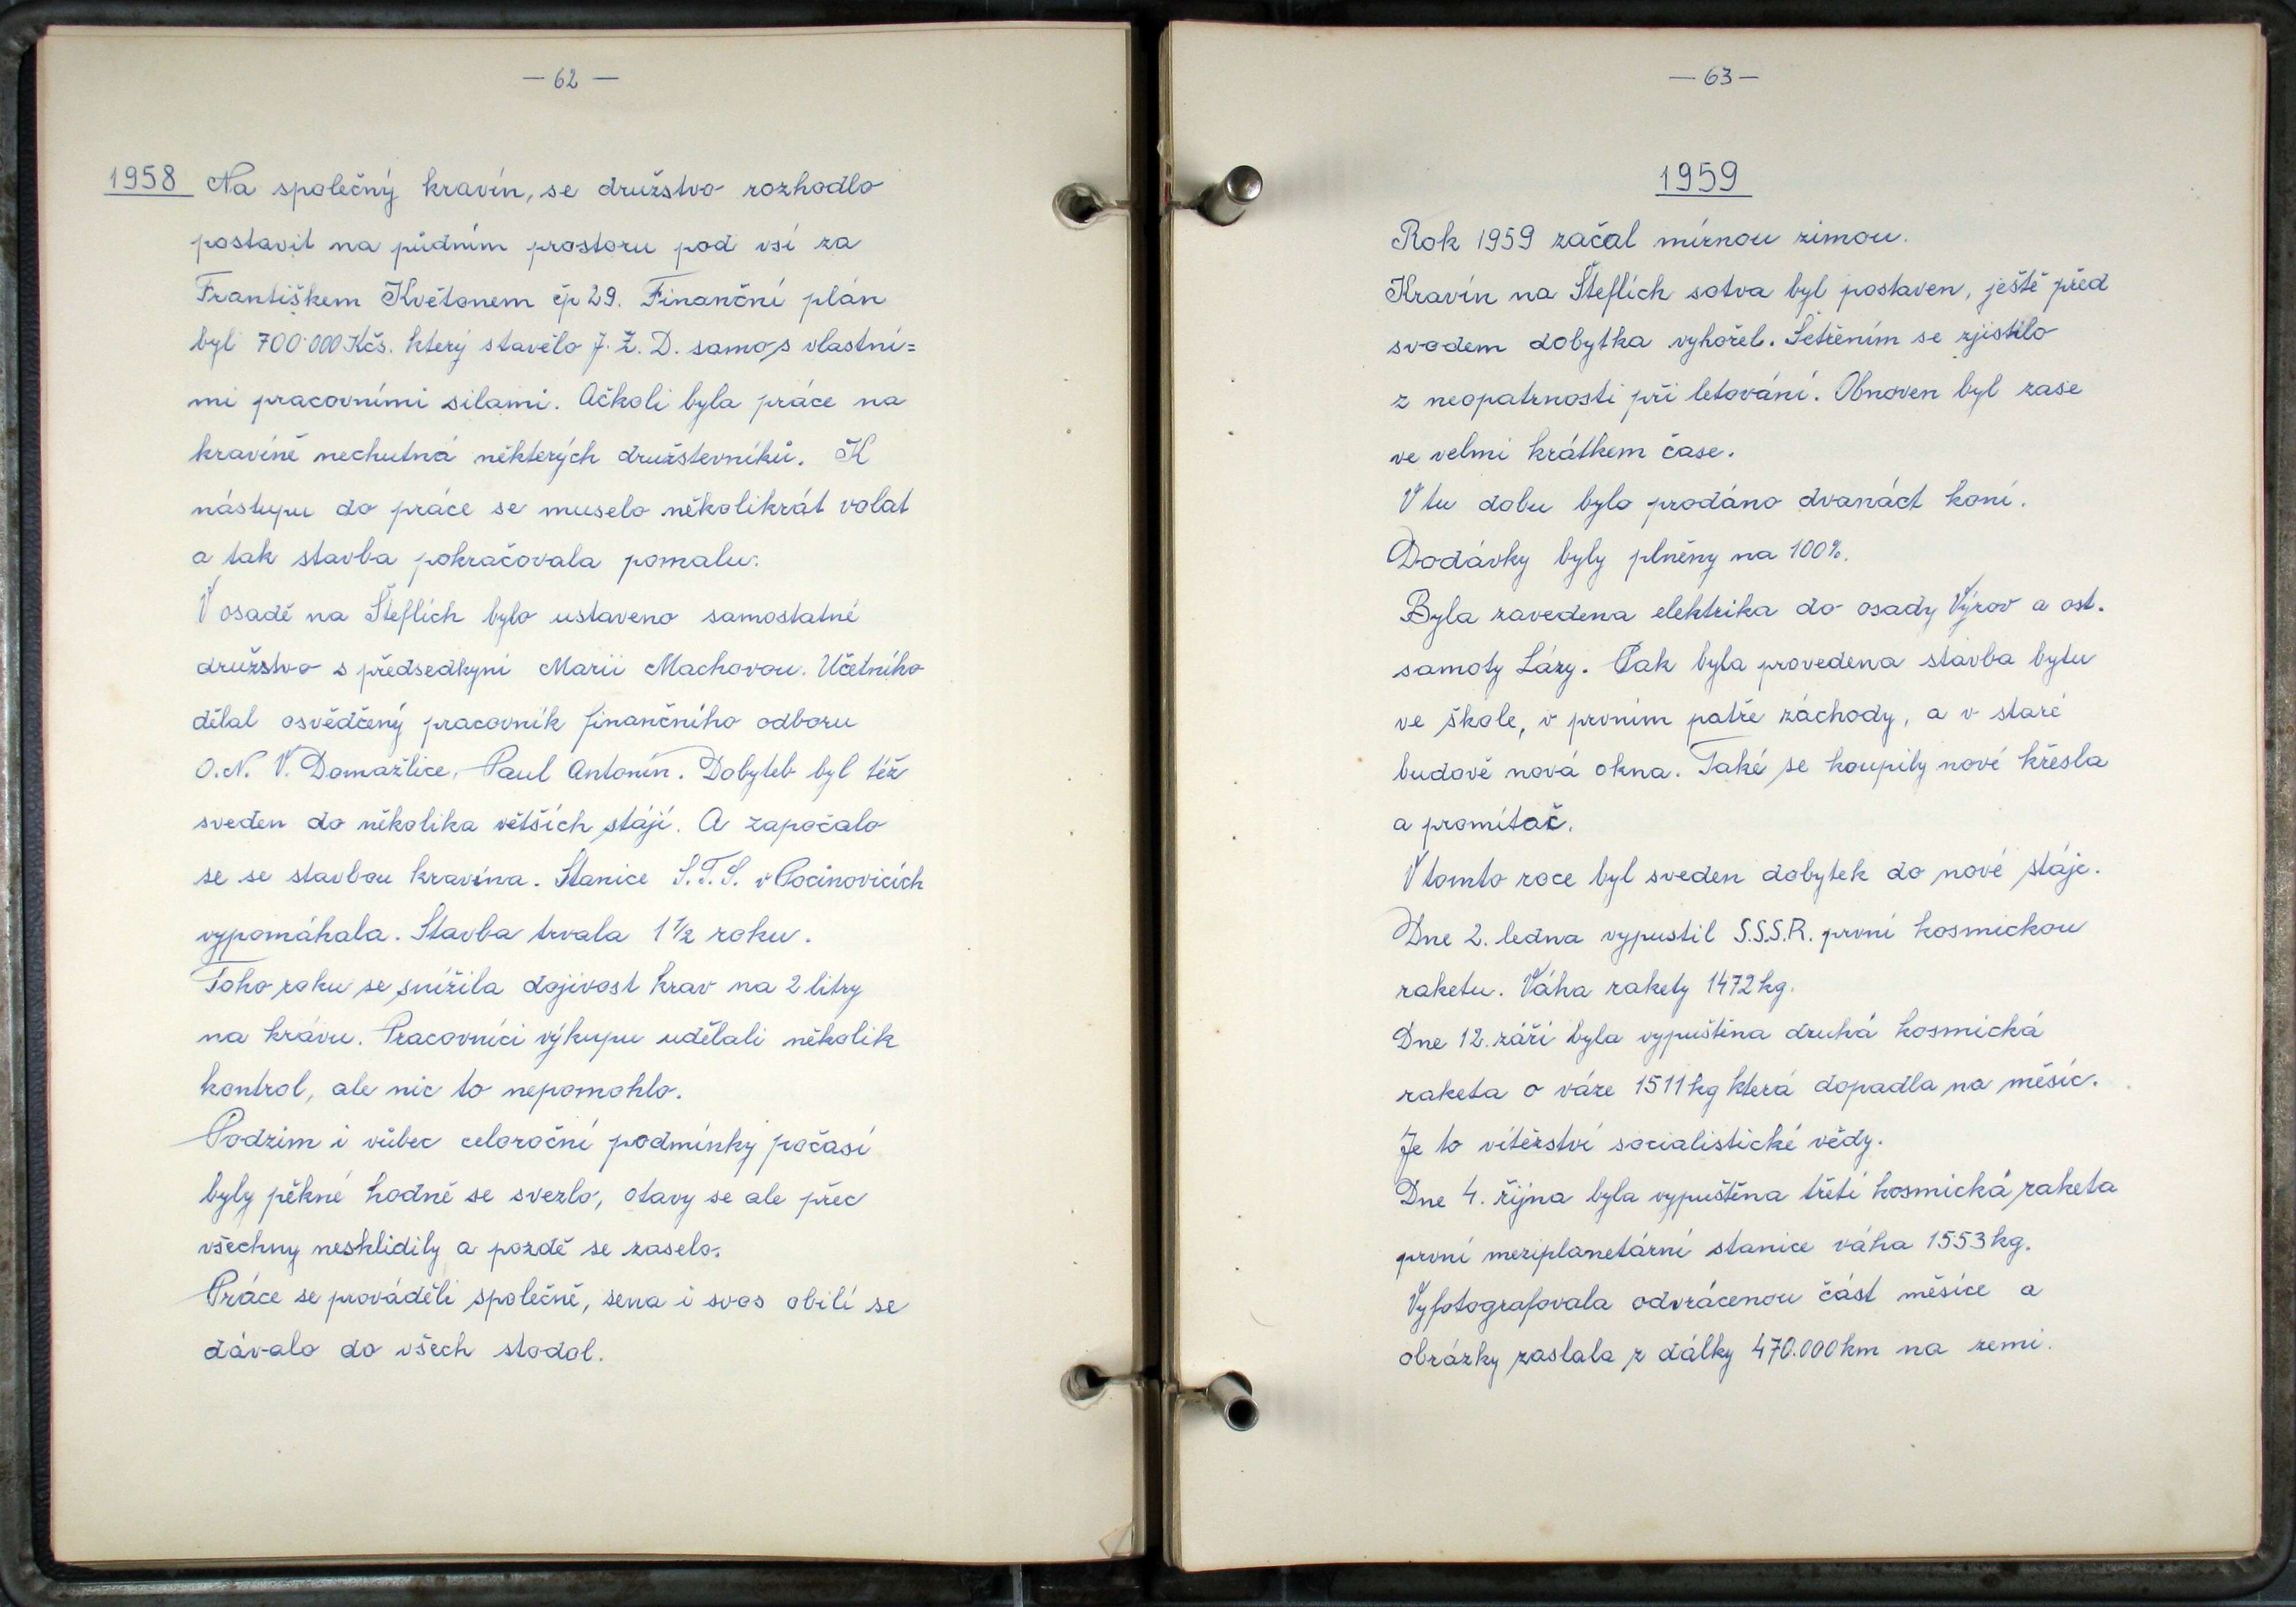 — 62 —
1958 Na společný kravín, se družstvo rozhodlo
postavit na půdním prostoru pod vsí za
Františkem Květonem čp 29. Finanční plán
byl 700.000 Kčs. který stavělo J. Z. D. samo s vlastní=
mi pracovními silami. Ačkoli byla práce na
kravíně nechutná některých družstevníků. K
nástupu do práce se muselo několikrát volat
a tak stavba pokračovala pomalu.
V osadě na Šteflích bylo ustaveno samostatné
družstvo s předsedkyni Marii Machovou. Účetního
dělal osvědčený pracovník finančního odboru
O.N. V. Domažlice, Paul Antonín. Dobyteb byl též
sveden do několika větších stájí. A započalo
se se stavbou kravína. Stanice S.T.S. v Pocinovicích
vypomáhala. Stavba trvala 1 1/2 roku.
Toho roku se snížila dojivost krav na 2 litry
na krávu. Pracovníci výkupu udělali několik
kontrol, ale nic to nepomohlo.
Podzim i vůbec celoroční podmínky počasí
byly pěkné hodně se svezlo, otavy se ale přec
všechny nesklidily a pozdě se zaselo.
Práce se prováděli společně, sena i svos obilí se
dávalo do všech stodol.
— 63 —
1959
Rok 1959 začal mírnou zimou.
Kravín na Šteflích sotva byl postaven, ještě před
svodem dobytka vyhořel. Šetřením se zjistilo
z neopatrnosti při letování. Obnoven byl zase
ve velmi krátkem čase.
V tu dobu bylo prodáno dvanáct koní.
Dodávky byly plněny na 100%.
Byla zavedena elektrika do osady Výrov a ost.
samoty Lázy. Pak byla provedena stavba bytu
ve škole, v prvním patře záchody, a v staré
budově nová okna. Také se koupily nové křesla
a promítač.
V tomto roce byl sveden dobytek do nové stáje.
Dne 2. ledna vypustil S.S.S.R. první kosmickou
raketu. Váha rakety 1472 kg.
Dne 12. září byla vypuštěna druhá kosmická
raketa o váze 1511 kg která dopadla na měsíc.
Je to vítězství socialistické vědy.
Dne 4. října byla vypuštěna třetí kosmická raketa
první meziplanetární stanice váha 1553 kg.
Vyfotografovala odvrácenou část měsíce a
obrázky zaslala z dálky 470.000 km na zemi.